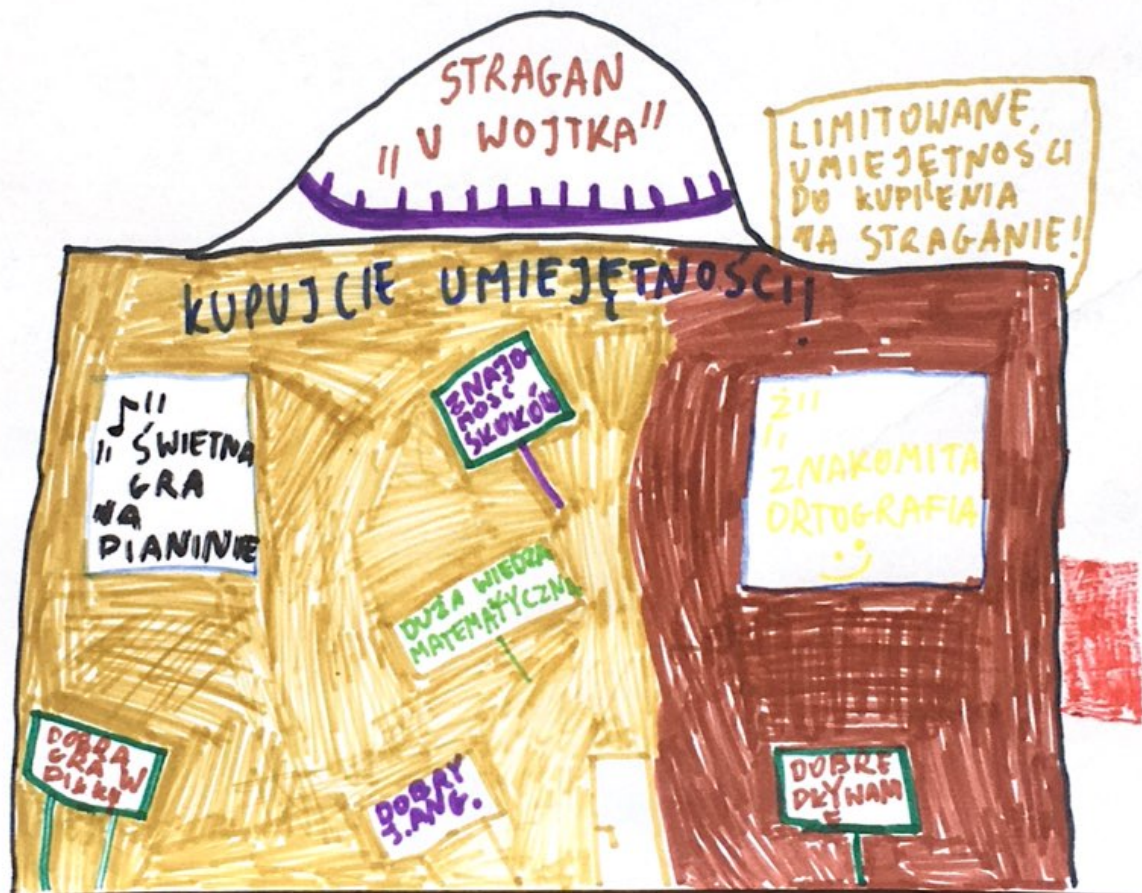 STRAGAN
" U WOJTKA"
LIMITOWANE
UMIEJĘTNOŚCI
DO KUPIENIA
NA STRAGANIE!
KUPUJCIE UMIEJĘTNOŚCI!
♪"
" ŚWIETNA
GRA
NA
PIANINIE
ZNAJO
MOŚĆ
SKOKÓW
Ż"
"
ZNAKOMITA
ORTOGRAFIA
DUŻA WIEDZA
MATEMATYCZNA
DOBRA
GRA W
PIŁKĘ
DOBRY
J. ANG.
DOBRE
PŁYWANI
E